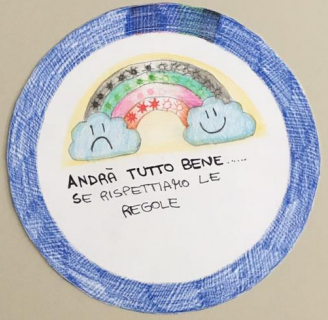 ANDRÃ TUTTO BENE......
SE RISPETTIAMO LE
REGOLE